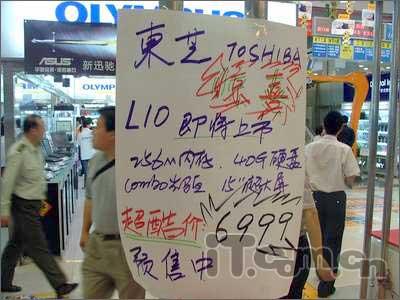 OLYMPUS
東芝 TOSHIBA
惊喜
ASUS
新迅驰
OLYMPUS
L10 即将上市
256M内存、40G硬盘
combo光驱 15"
超酷价 6999
预售中
iT.com.cn